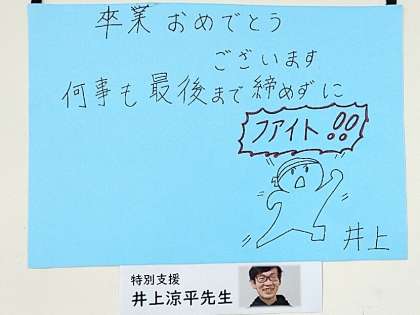 卒業おめでとう
ございます
何事も最後まで締めずに
ファイト!!
井上
特別支援
井上涼平先生